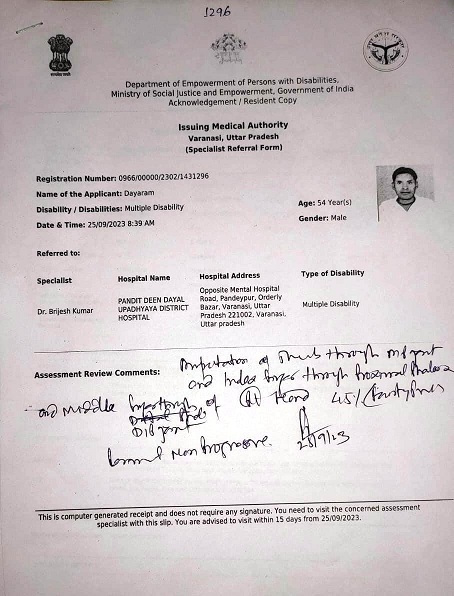 1296
Department of Empowerment of Persons with Disabilities,
Ministry of Social Justice and Empowerment, Government of India
Acknowledgement / Resident Copy
Issuing Medical Authority
Varanasi, Uttar Pradesh
(Specialist Referral Form)
Registration Number: 0966/00000/2302/1431296
Name of the Applicant: Dayaram
Age: 54 Year(s)
Disability / Disabilities: Multiple Disability
Gender: Male
Date & Time: 25/09/2023 8:39 AM
Referred to:
Specialist Hospital Name Hospital Address Type of Disability
Dr. Brijesh Kumar PANDIT DEEN DAYAL UPADHYAYA DISTRICT HOSPITAL Opposite Mental Hospital Road, Pandeypur, Orderly Bazar, Varanasi, Uttar Pradesh 221002, Varanasi, Uttar pradesh Multiple Disability
Assessment Review Comments: Amputation of Thumb through MP joint
and Index finger through Proximal Phalanx
and Middle finger through of (Rt) Hand 45% (fourty five)
DIP joint
Non Progressive.
25/9/23
This is computer generated receipt and does not require any signature. You need to visit the concerned assessment
specialist with this slip. You are advised to visit within 15 days from 25/09/2023.